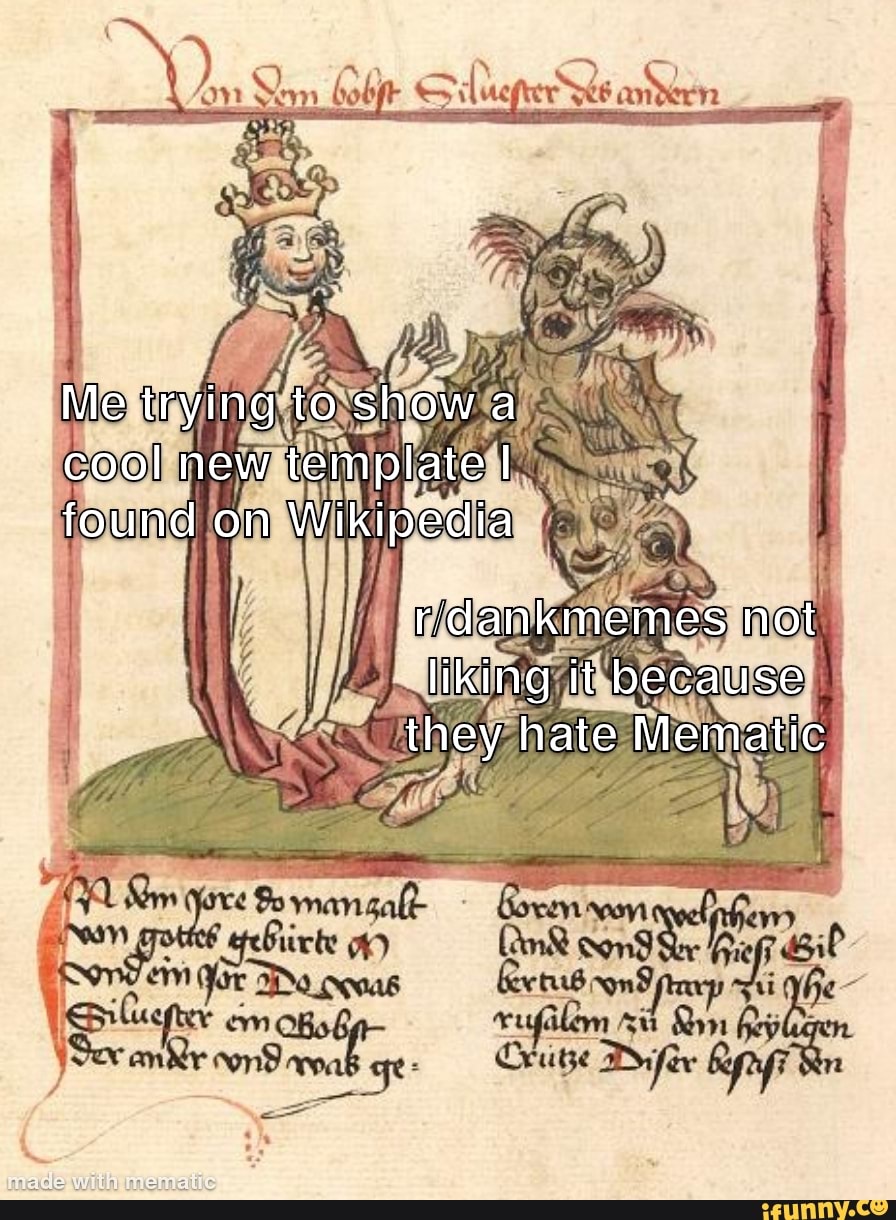 Von dem bobst Siluester des andern
Me trying to show a
cool new template I
found on Wikipedia
r/dankmemes not
liking it because
they hate Mematic
IN dem Jore do man zalt
von gottes gebürte M
vnd ein Jor Do was
Siluester ein Bobst
der ander vnd was ge:
boren von welschem
lande vnd der hiesz Gil
bertus vnd starp zü Jhe
rusalem zü dem heyligen
Crütze Diser besasz den
made with mematic
ifunny.co